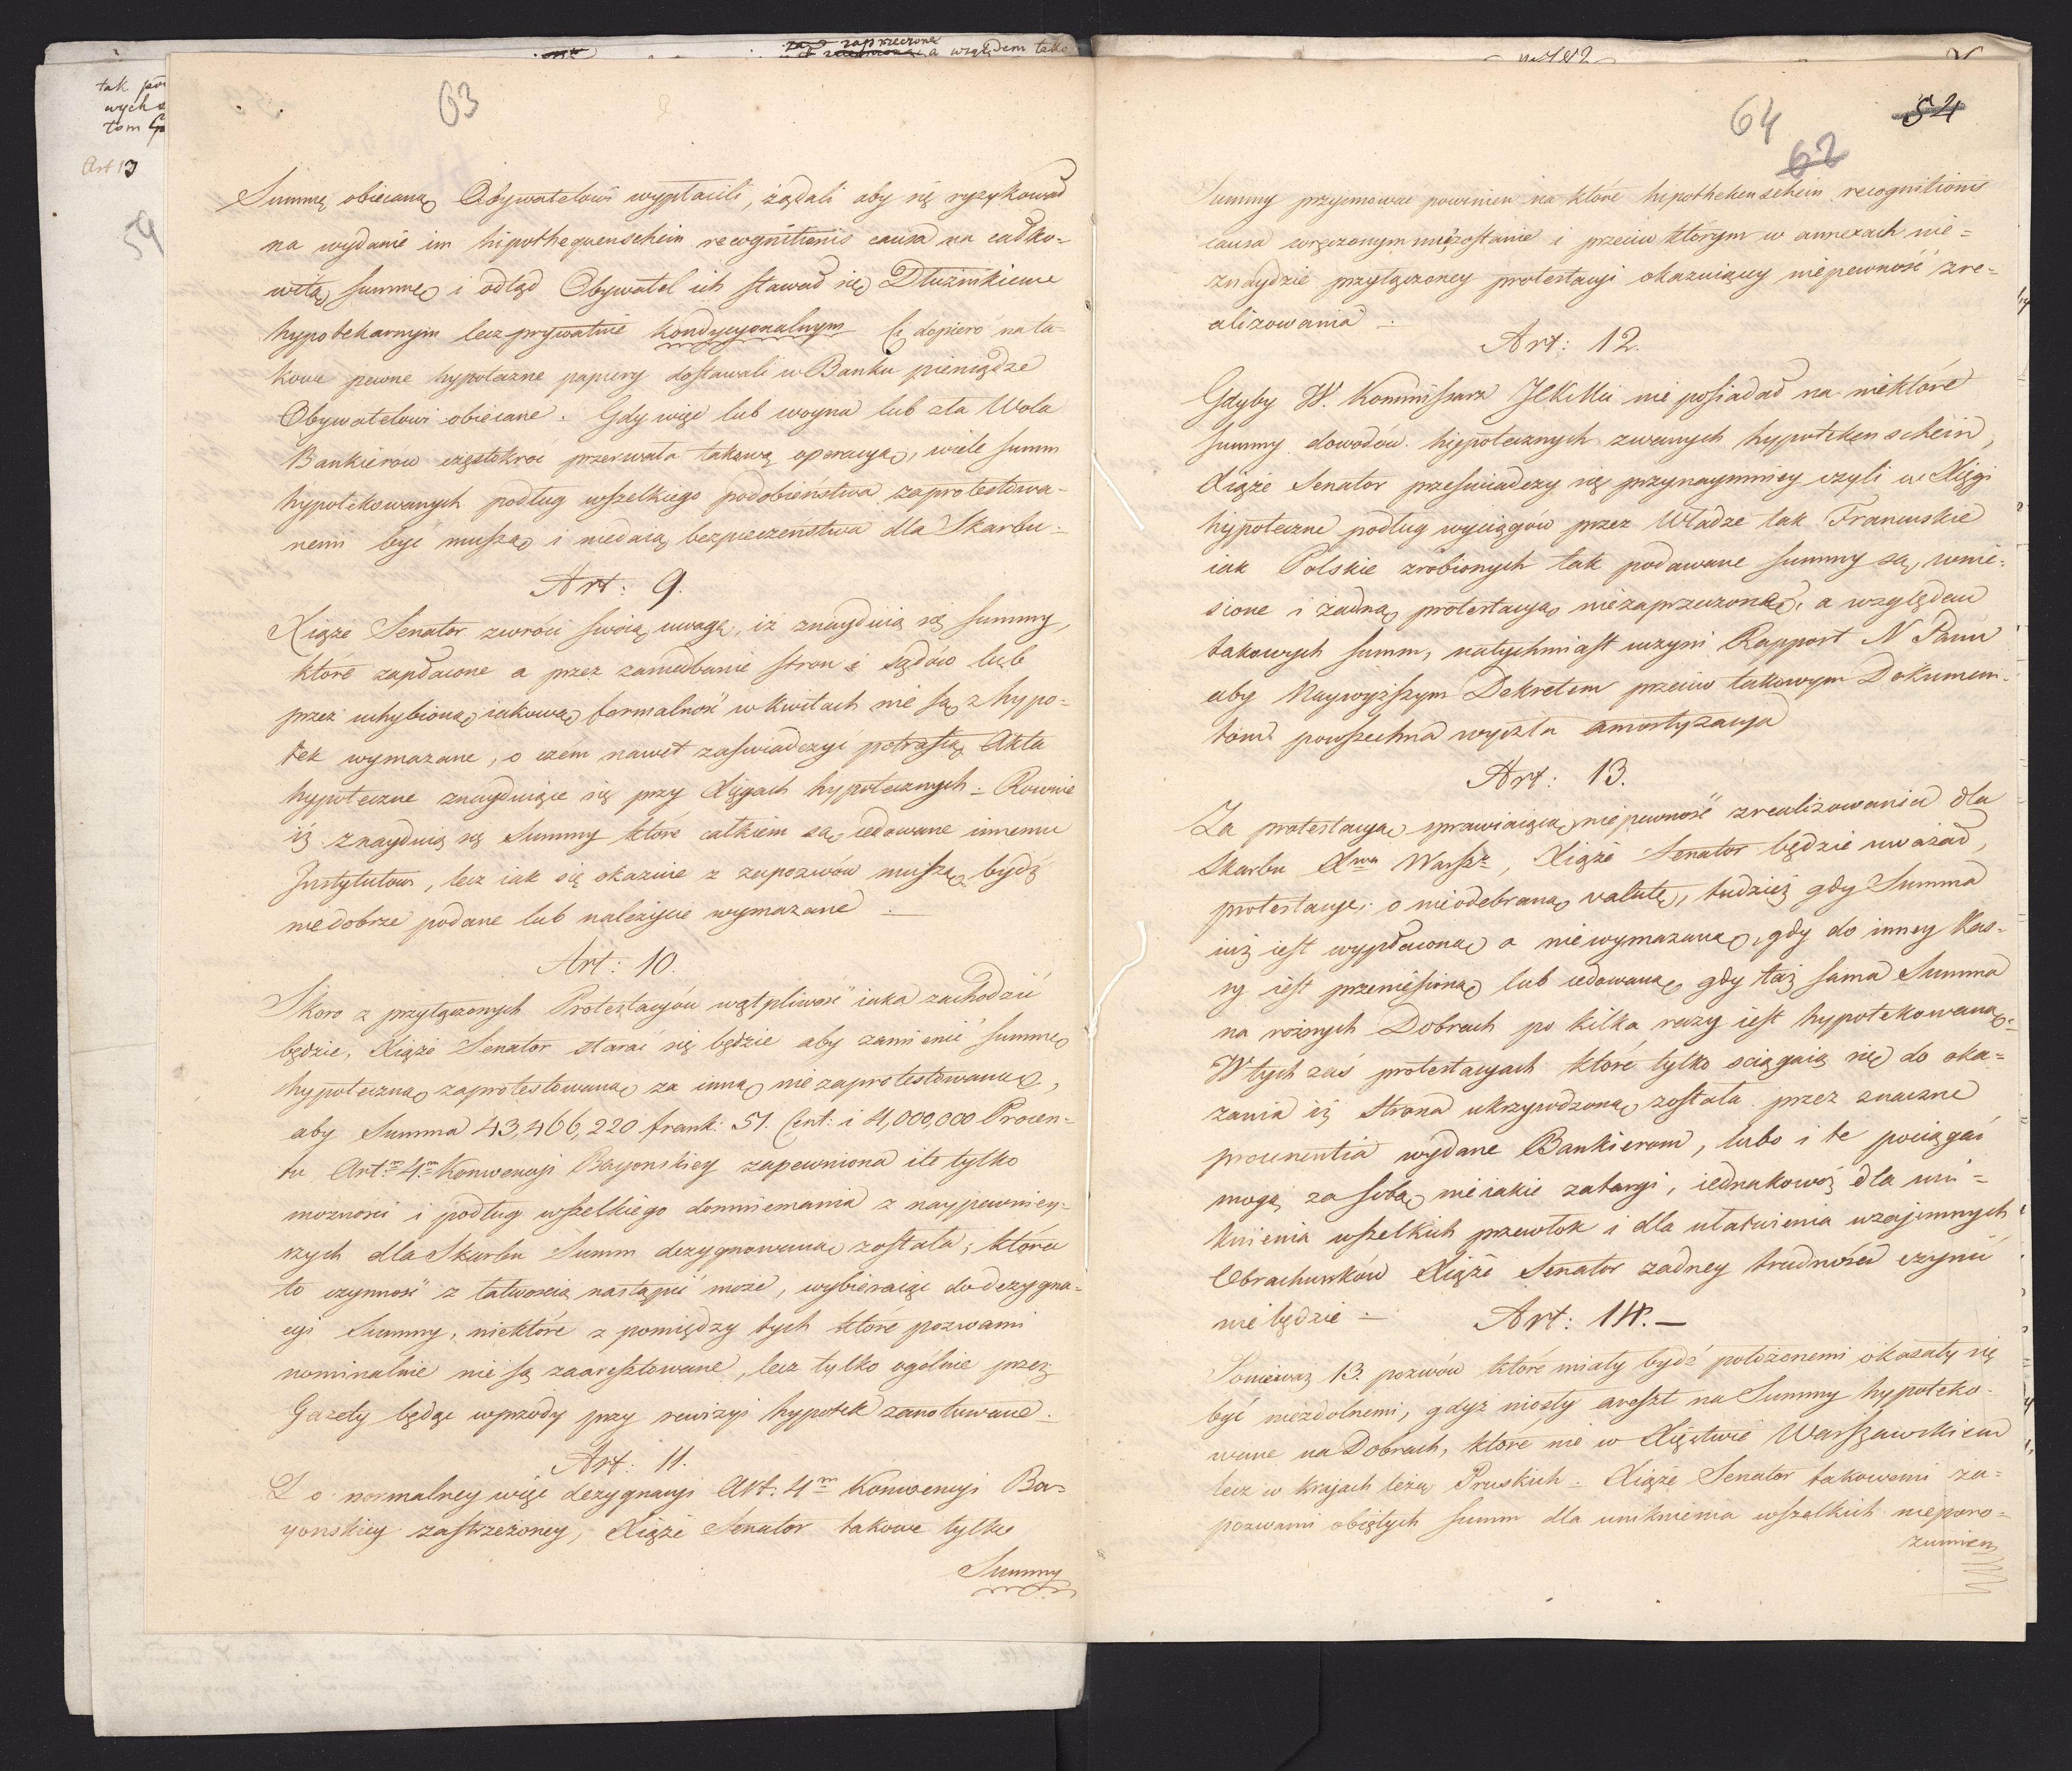 zaprzeczone
a względem tako
tak po
wych
tom
Art 13
59
63
Summę obiecaną Obywatelowi wypłacili, żądali aby się ryzykował
na wydanie im hipothequenschein recognitionis causa na całko-
witą summę i odtąd Obywatel ich stawał się Dłużnikiem
hypotekarnym lecz prywatnie kondycyonalnym Ci dopiero na ta-
kowe pewne hypoteczne papiery dostawali w Banku pieniądze
Obywatelowi obiecane. Gdy więc lub woyna lub zła Wola
Bankierow częstokroć przerwała takową operacyą, wiele summ
hypotekowanych podług wszelkiego podobieństwa zaprotestowa-
nemi być muszą i niedaią bezpieczenstwa dla Skarbu.
Art: 9.
Xiąże Senator zwróci swoią uwagę, iż znayduią się summy,
które zapłacone a przez zaniedbanie stron i sądów lub
przez uchybioną iakową formalność w kwitach nie są z hypo-
tek wymazane, o czém nawet zaświadczyć potrafią Akta
hypoteczne znayduiące się przy Xięgach hypotecznych. Rownie
iż znayduią się Summy które całkiem są cedowane innemu
Instytutowi, lecz iak się okazuie z zapozwów muszą bydź
niedobrze podane lub należycie wymazane.
Art: 10.
Skoro z przyłączonych Protestacyów wątpliwość iaka zachodzić
będzie, Xiąże Senator starać się będzie aby zamienić summę
hypoteczną zaprotestowaną za inną nie zaprotestowaną,
aby Summa 43,466,220 frank: 51. Cent: i 4,000,000 Procen-
tu Artm 4m Konwencyi Bayonskiey zapewniona ile tylko
możności i podług wszelkiego domniemania z naypewniey-
szych dla Skarbu Summ dezygnowana została; która
to czynność z łatwością nastąpić może, wybieraiąc do dezygna-
cyi Summy, niektóre z pomiędzy tych które pozwami
nominalnie nie są zaaresztowane, lecz tylko ogólnie przez
Gazety będąc wprzódy przy rewizyi hypotek zanotowane.
Art: 11.
Z o normalney więc dezygnacyi Art: 4m Konwencyi Ba-
yonskiey zastrzeżoney, Xiąże Senator takowe tylko
Summy
64
54
62
Summy przyimować powinien na które hipothekenschein recognitionis
causa wręczonym mu zostanie i przeciw którym w annexach nie-
znaydzie przyłączoney protestacyi okazuiącey niepewność zre-
alizowania.
Art: 12.
Gdyby W. Kommissarz JCKMci nie posiadał na niektóre
summy dowodów hippotecznych zwanych hypothekenschein,
Xiąże Senator przeświadczy się przynaymniey czyli w Xięgi
hypoteczne podług wyciągów przez Władze tak Francuskie
iak Polskie zrobionych tak podawane summy są wnie-
sione i żadną protestacyą niezaprzeczone, a względem
takowych summ, natychmiast uczyni Rapport N Panu
aby Naywyższym Dekretem przeciw takowym Dokumen-
tom powszechna wyszła amortyzacya
Art: 13.
Za protestacyą sprawiaiącą niepewność zrealizowania dla
Skarbu Xwa Warsz, Xiąże Senator będzie uważał,
protestacye, o nieodebraną valutę, tudzież gdy Summa
iuż iest wypłaconą a niewymazaną, gdy do inney Kas-
sy iest przeniesioną lub cedowaną, gdy taż sama Summa
na różnych Dobrach po kilka razy iest hypotekowaną.
W tych zaś protestacyach które tylko ściągaią się do oka-
zania iż Strona ukrzywdzoną została przez znaczne
procunentia wydane Bankierom, lubo i te pociągać
mogą za sobą nieiakie zatargi, iednakowoż dla uni-
knienia wszelkich przewłok i dla ułatwienia wzajemnych
Obrachunków Xiąże Senator żadney trudności czynić
nie będzie.
Art: 14.
Ponieważ 13. pozwów które miały bydź położonemi okazały się
być niezdolnemi, gdyż niosły areszt na Summy hypoteko-
wane na Dobrach, które nie w Xięstwie Warszawskiem
lecz w krajach leżą Pruskich. Xiąże Senator takowemi za-
pozwami obiętych summ dla uniknienia wszelkich nieporo-
zumien